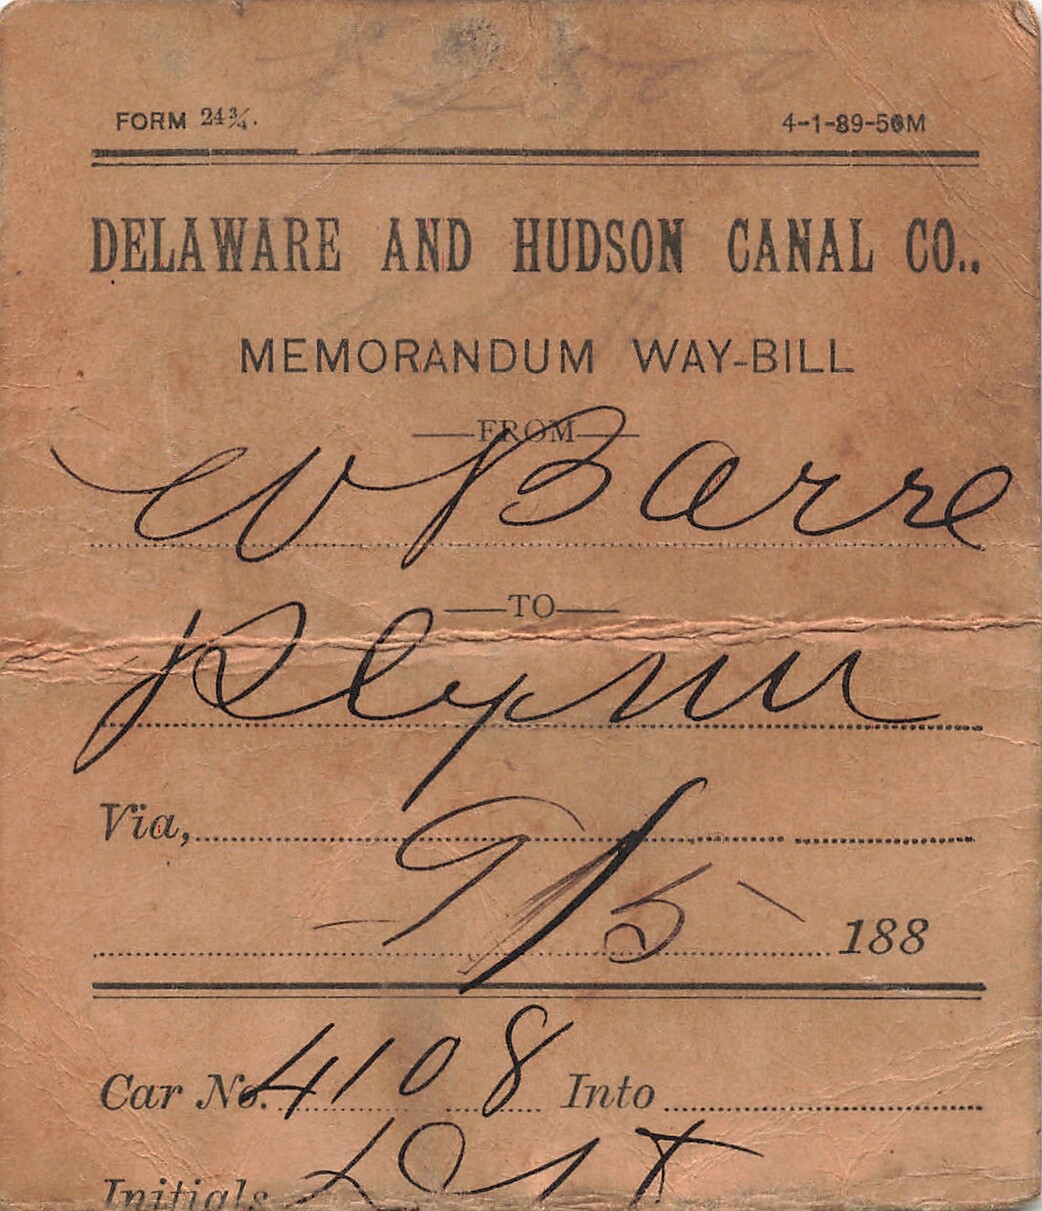 FORM 24¾. 4-1-89-50M
DELAWARE AND HUDSON CANAL CO.,
MEMORANDUM WAY-BILL
—FROM—
W Barre
—TO—
Plym
Via,
9/5 188
Car No. 4108 Into
Initials